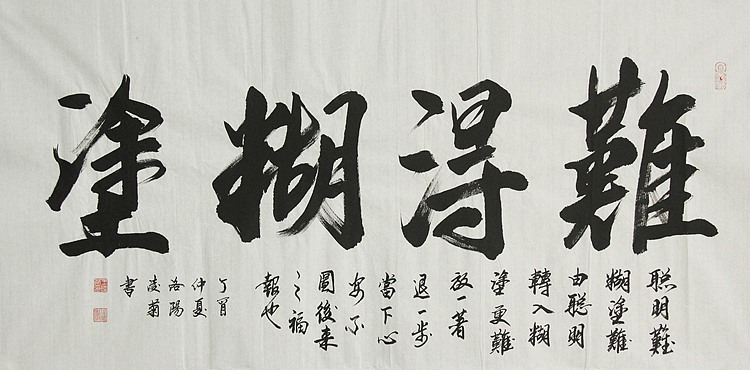 難得糊塗
聰明難
糊塗難
由聰明
轉入糊
塗更難
放一著
退一步
當下心
安不
圖後來
之福
報也
丁酉
仲夏
洛陽
凌菊
書